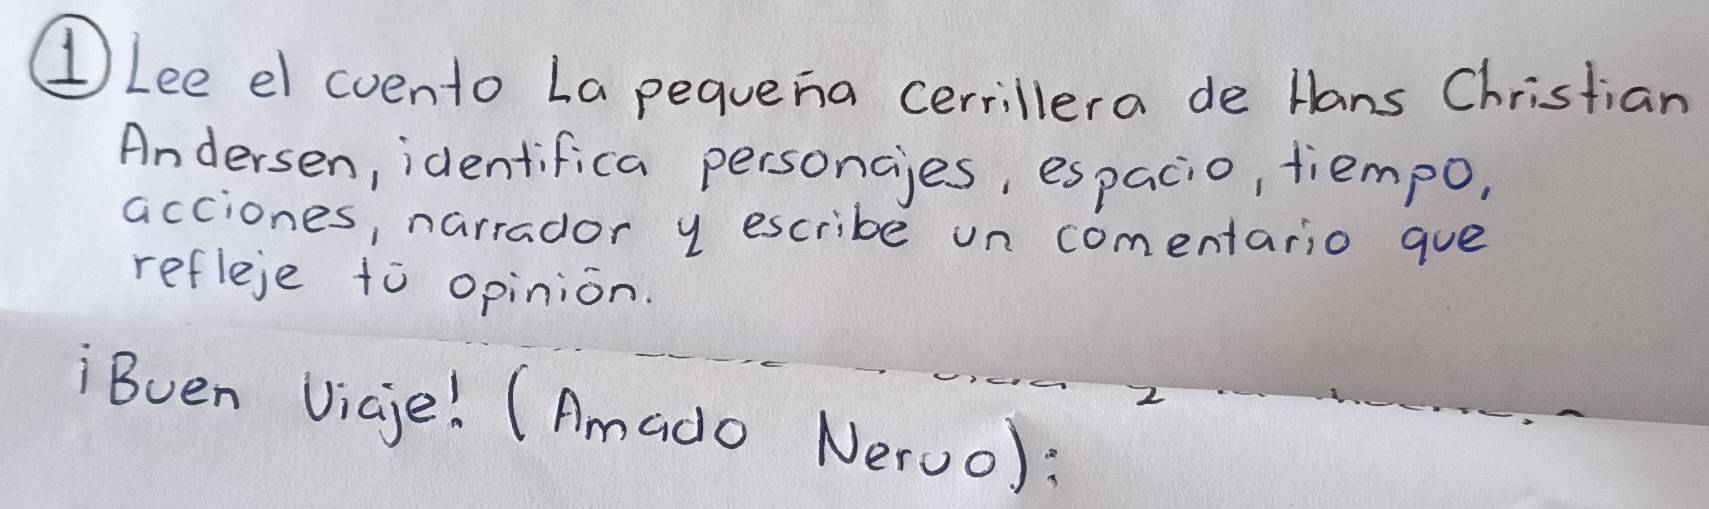 ① Lee el cuento La pequeña cerrillera de Hans Christian
Andersen, identifica personajes, espacio, tiempo,
acciones, narrador y escribe un comentario que
refleje tú opinión.
¡Buen Viaje! (Amado Nervo):